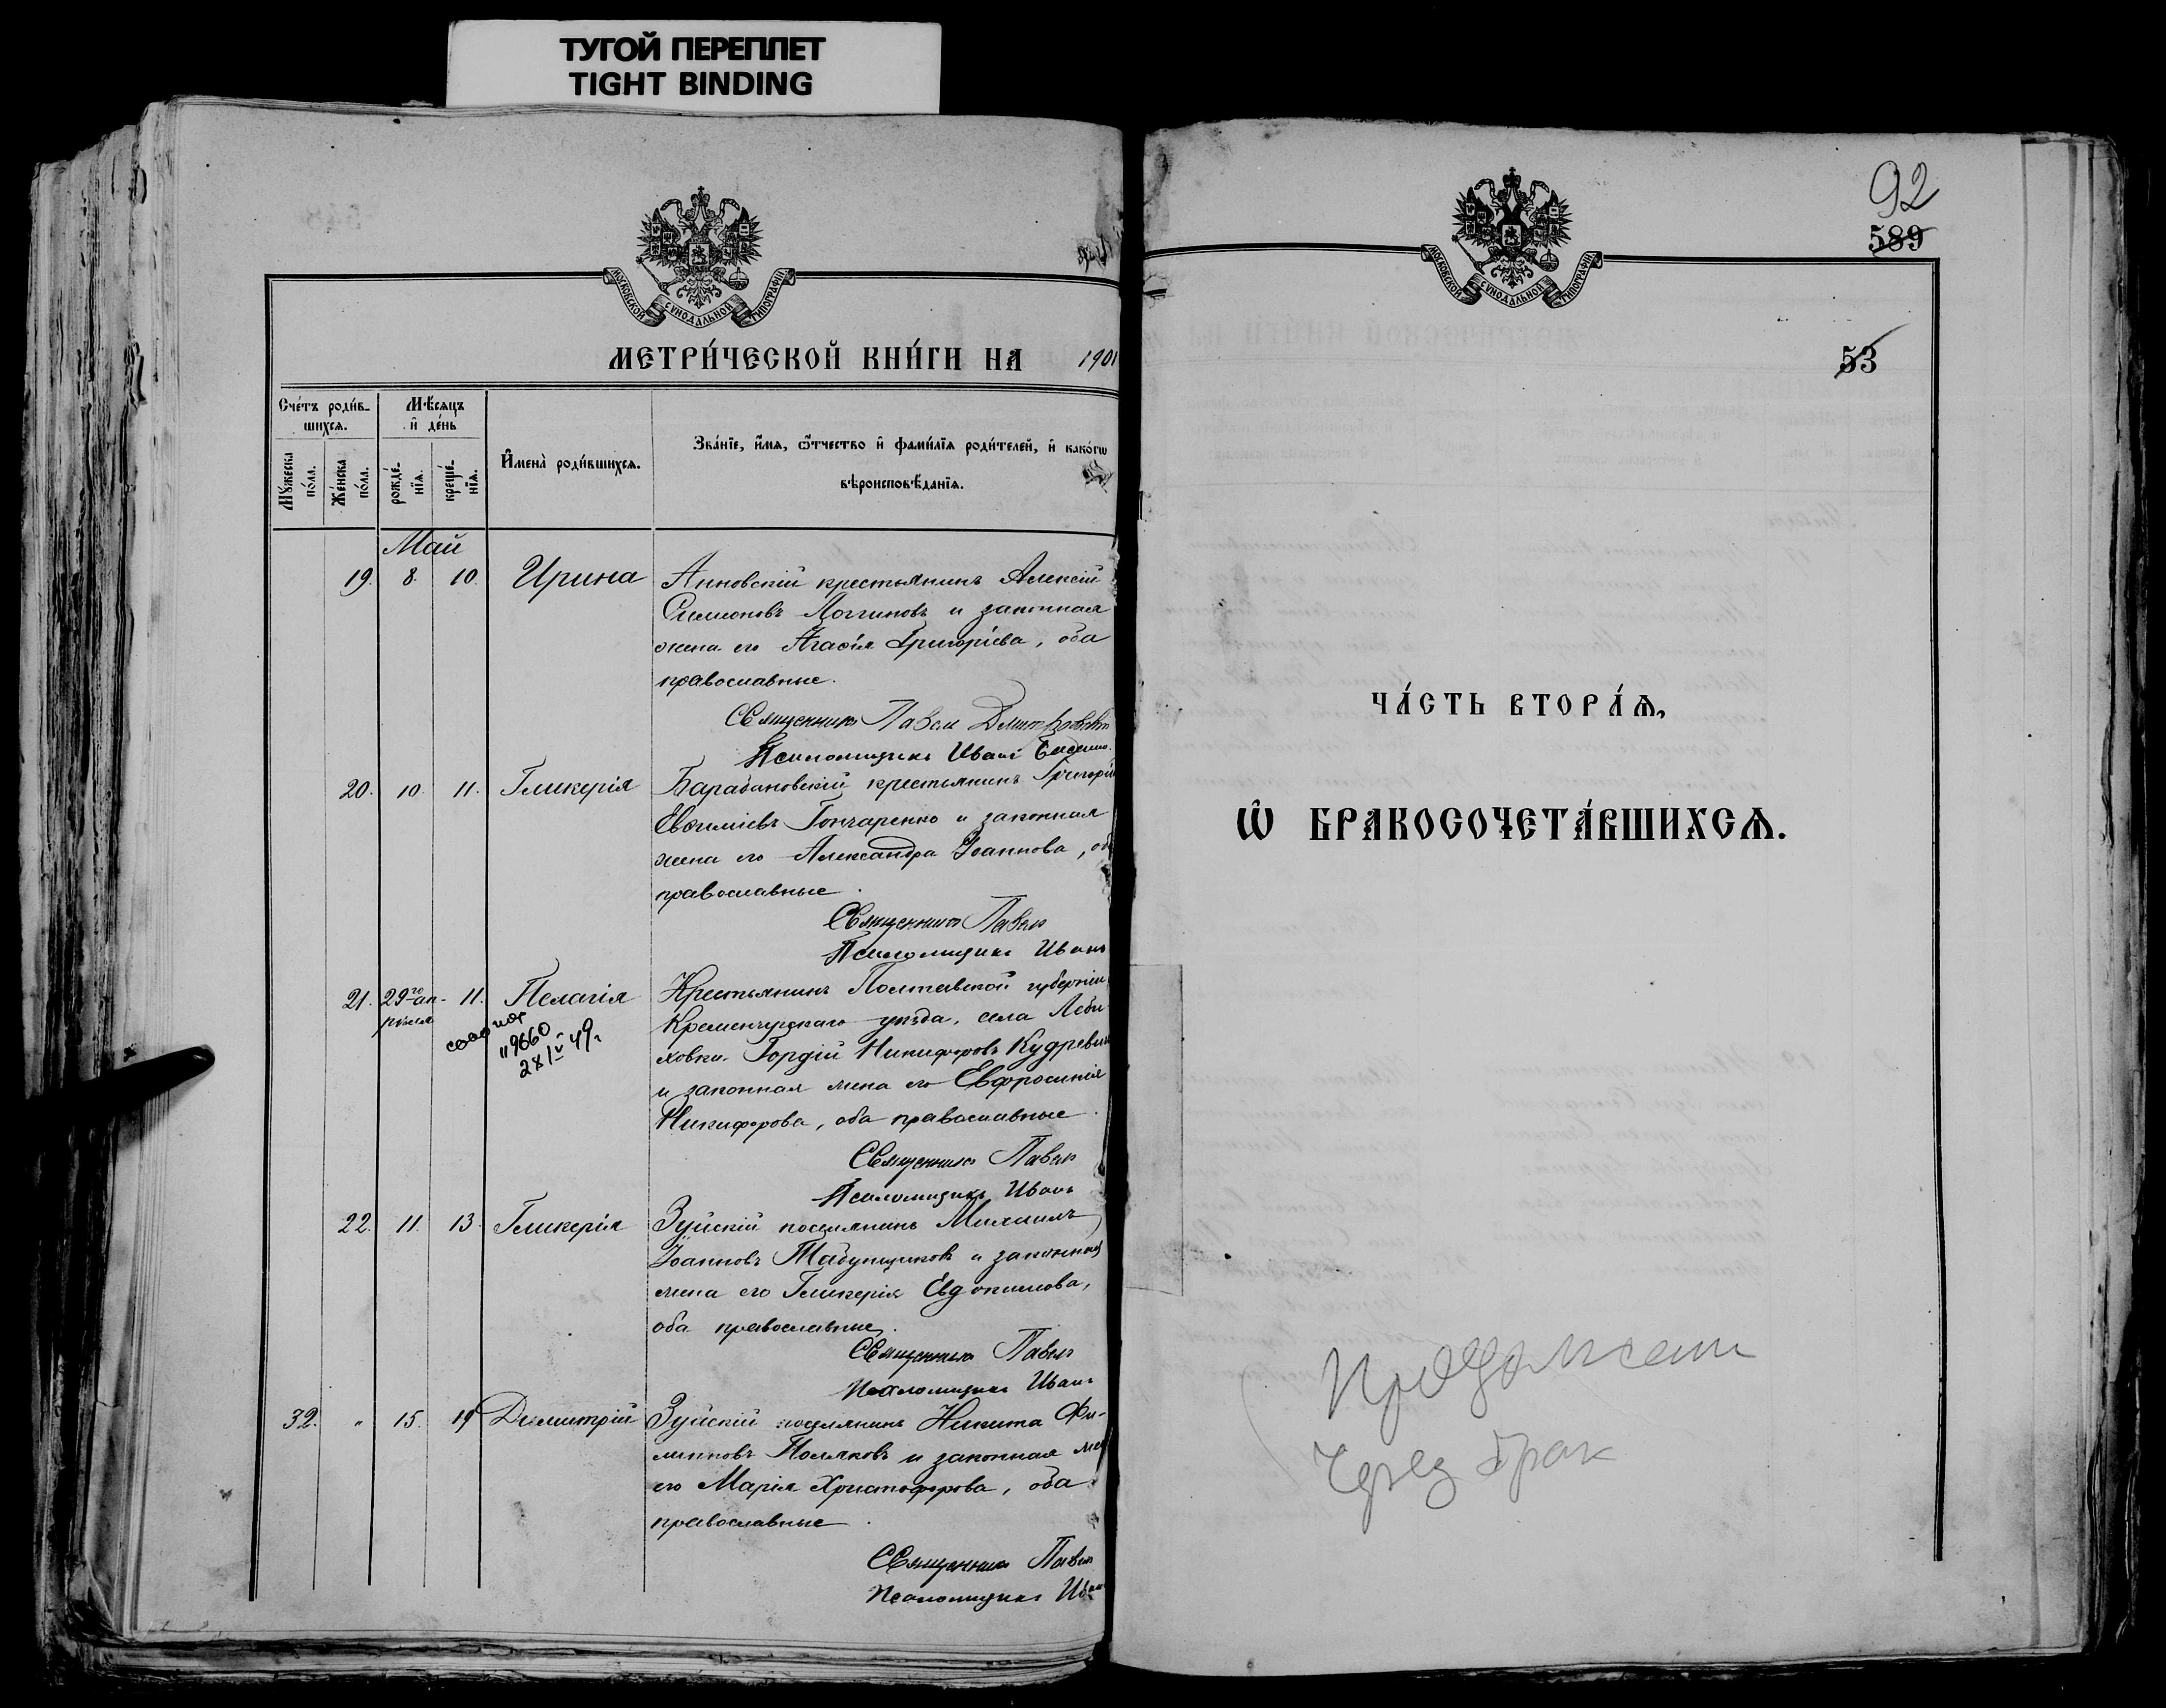 ТУГОЙ ПЕРЕПЛЕТ
TIGHT BINDING
МОСКОВСКОЙ СѴНОДАЛЬНОЙ ТИПОГРАФІИ
МЕТРИ́ЧЕСКОЙ КНИ́ГИ НА 1901
Сче́тъ роди́в-
шихсѧ.
Мѣ́сѧцъ
и҆ де́нь
Мꙋ́жеска
по́ла.
Же́нска
по́ла.
рожде́-
нїѧ.
креще́-
нїѧ.
И҆мена̀ роди́вшихсѧ.
Зва́нїе, и҆́мѧ, ѻ҆́тчество и҆ фами́лїѧ роди́телей, и҆ како́гѡ
вѣроисповѣ́данїѧ.
Май
19. 8. 10. Ирина Анновскій крестьянинъ Алексій
Симеоновъ Логгиновъ и законная
жена его Агаѳія Григоріева, оба
православные.
Священникъ Павелъ
Псаломщикъ Иванъ
20. 10. 11. Гликерія Барабановскій крестьянинъ Григорій
Евѳиміевъ Гончаренко и законная
жена его Александра Іоаннова, об
православные.
Священникъ Павелъ
Псаломщикъ Иванъ
21. 29го ап- 11. Пелагія Крестьянинъ Полтавской губерніи
рѣля
Кременчугскаго уѣзда, села
ховки Гордій Никифоровъ
"9660
28/V 49г
и законная жена его Евфросинія
Никифорова, оба православные.
Священникъ Павелъ
Псаломщикъ Иванъ
22. 11. 13. Гликерія Зуйскій поселянинъ Михаилъ
Іоанновъ Табунщиковъ и законная
жена его Гликерія Евдокимова,
оба православные.
Священникъ Павелъ
Псаломщикъ Иванъ
32. " 15. 19 Димитрій Зуйскій поселянинъ Никита Фи-
липповъ Поляковъ и законная же
его Марія Христофорова, оба
православные.
Священникъ Павелъ
Псаломщикъ Иван
92
589
МОСКОВСКОЙ СѴНОДАЛЬНОЙ ТИПОГРАФІИ
53
ЧА́СТЬ ВТОРА́Ѧ,
Ѡ҆ БРАКОСОЧЕТА́ВШИХСѦ.
Продолжени
через брак